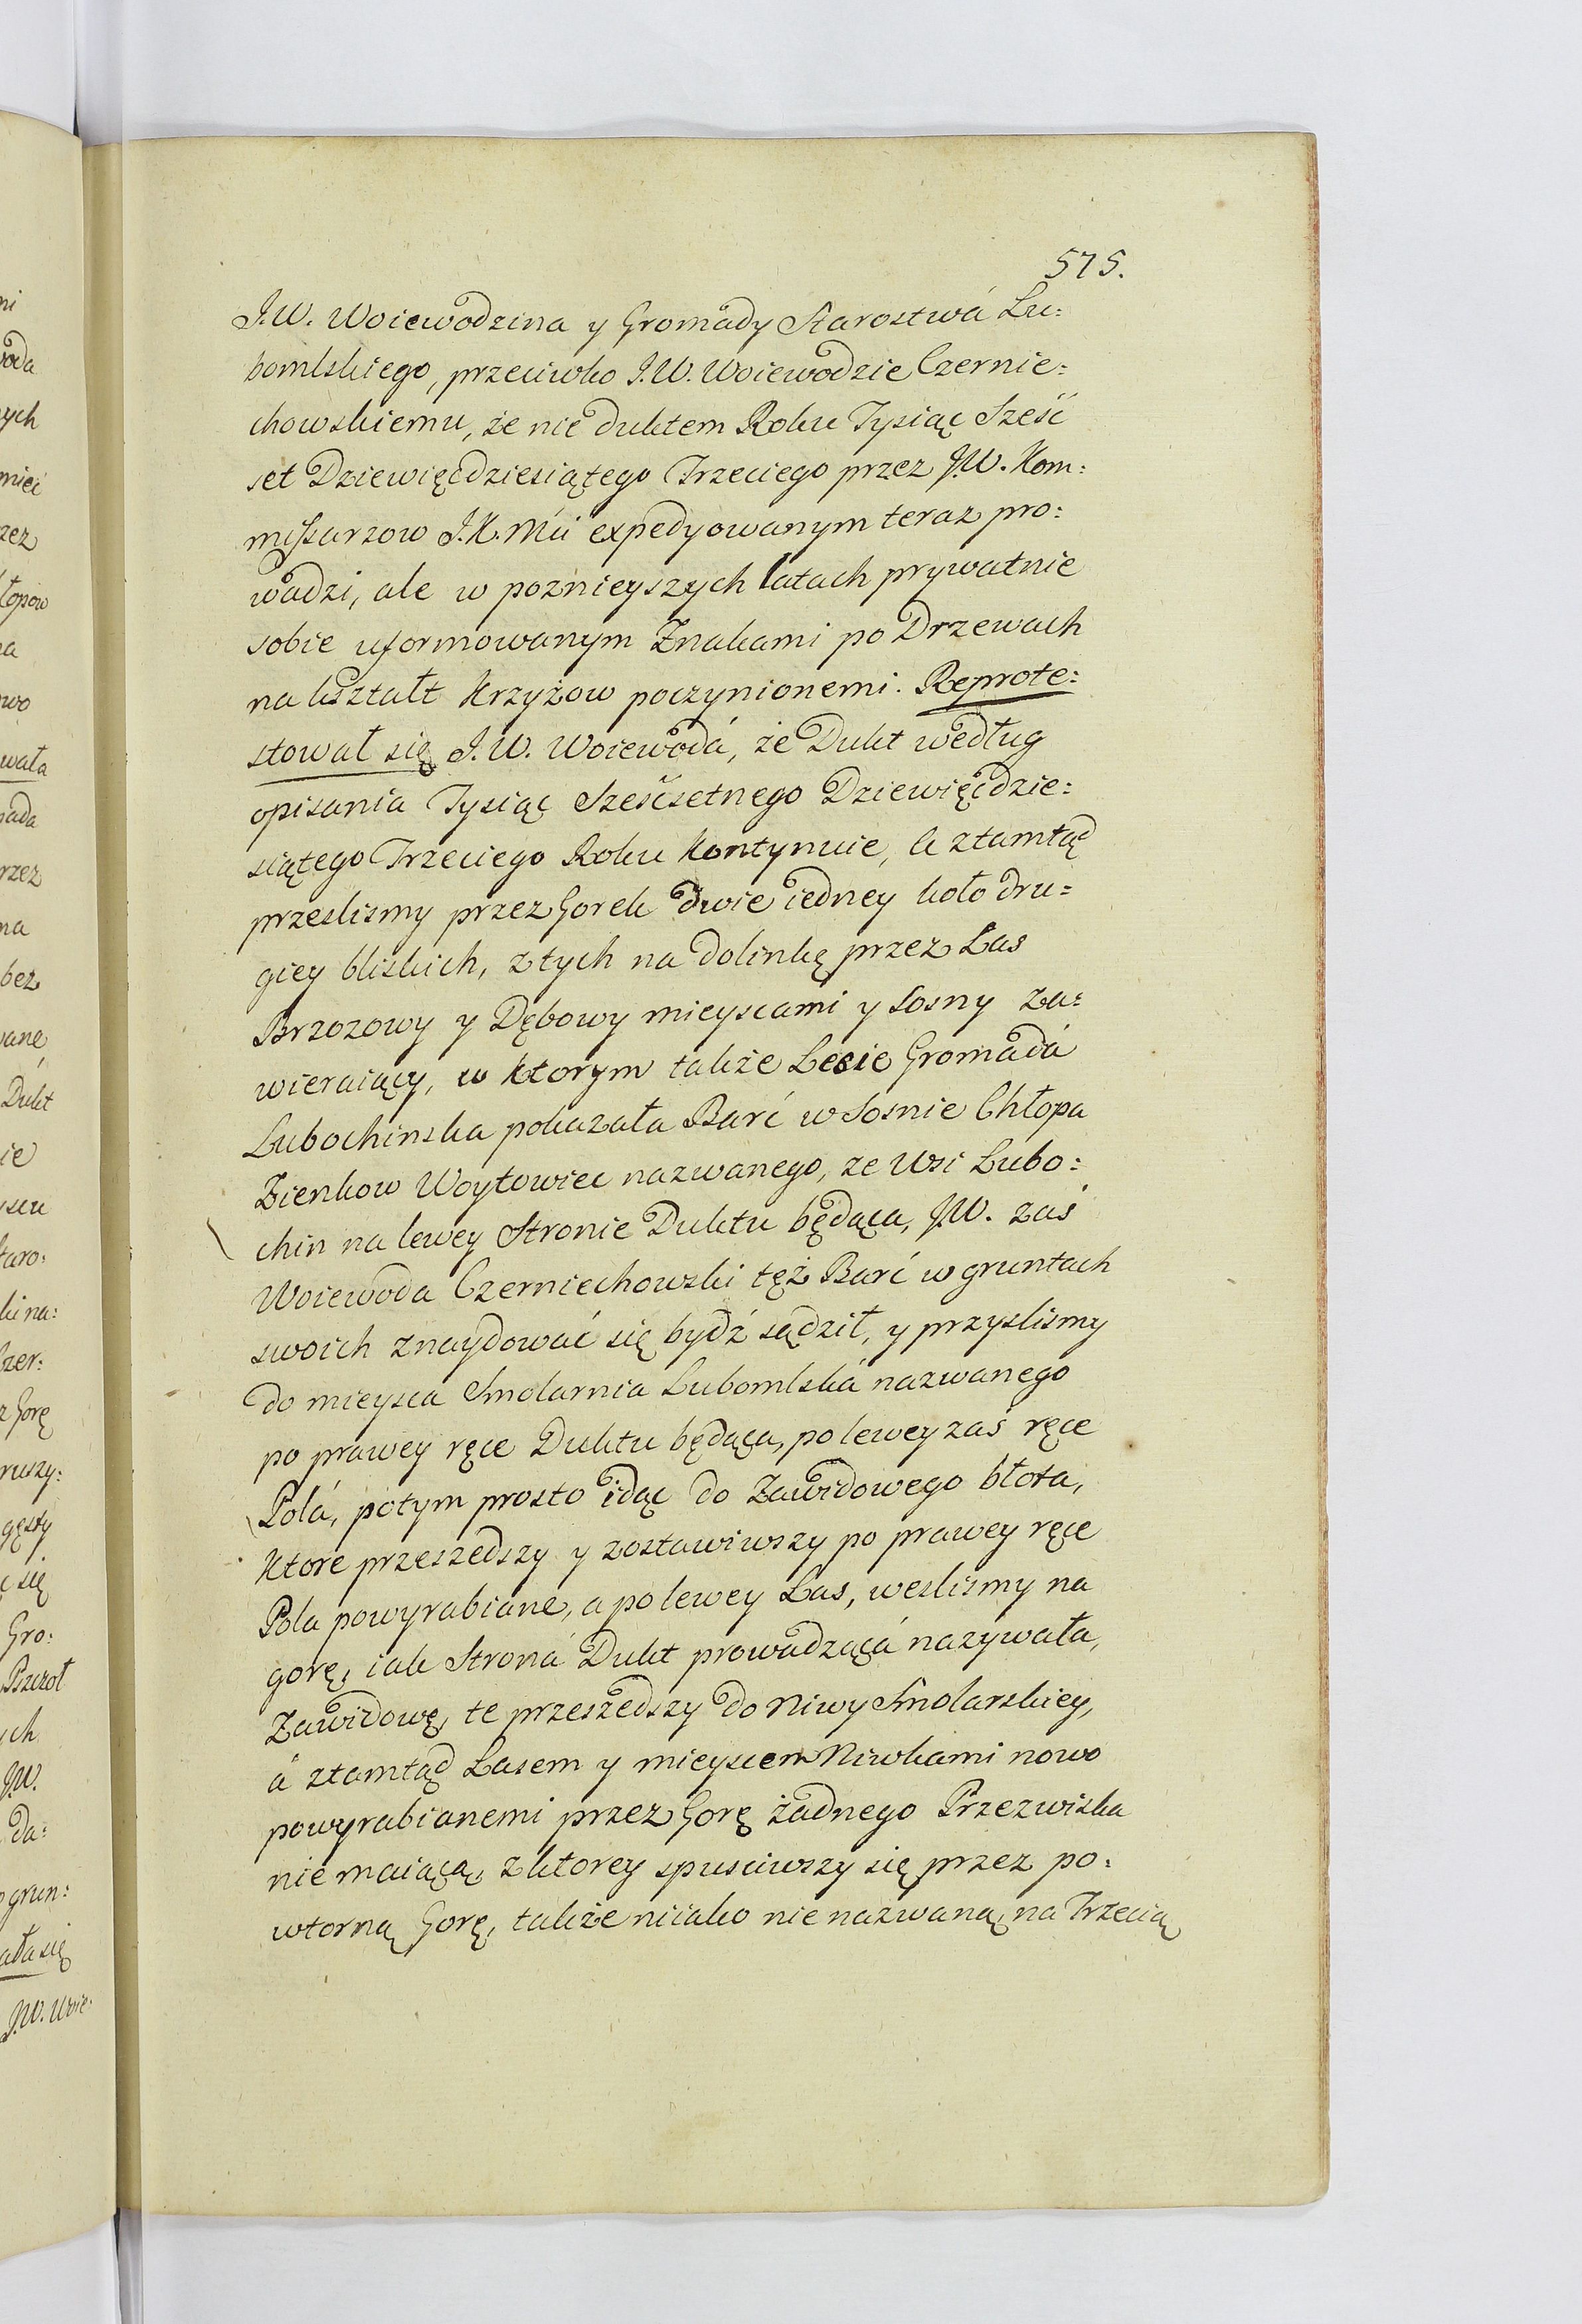 575.
J.W. Woiewodzina y Gromady Starostwá Lu:
bomlskiego, przeciwko J.W. Woiewodzie Czernie:
chowskiemu, że nie duktem Roku Tysiąc Sześć
set Dziewięćdziesiątego Trzeciego przez JW. Kom:
missarzow J.K.Mći expedyowanym teraz pro:
wadzi, ale w poznieyszych latach prywatnie
sobie uformowanym Znakami po Drzewach
na kształt Krzyżow poczynionemi. Reprote:
stował się J.W. Woiewodá, że Dukt według
opisania Tysiąc Sześćsetnego Dziewięćdzie:
siątego Trzeciego Roku kontynuie, a ztamtąd
przeslismy przez Gorek dwie iedney koło dru:
giey bliskich, z tych na dolinkę przez Las
Brzozowy y Dębowy mieyscami y Sosny za:
wieraiący, w ktorym także Lesie Gromadá
Lubochinska pokazała Barć w Sosnie Chłopa
Zienkow Woytowiec nazwanego, ze Wsi Lubo:
chin na lewey Stronie Duktu będąca, JW. zaś
Woiewoda Czerniechowski tęż Barć w gruntach
swoich znaydować się bydź sądził, y przyslismy
do mieysca Smolarnia Lubomlská nazwanego
po prawey ręce Duktu będąca, po lewey zaś ręce
Polá, potym prosto idąc do Zawidowego błota,
ktore przeszedszy y zostawiwszy po prawey ręce
Pola powyrabiane, a po lewey Las, weslismy na
gorę, iak Stroná Dukt prowadzącá nazywała,
Zawidowę, te przeszedszy do Niwy Smolarskiey,
á ztamtąd Lasem y mieyscem Niwkami nowo
powyrabianemi przez Gorę żadnego Przezwiska
nie maiącą, z ktorey spusciwszy się przez po:
wtorną Gorę, także niiako nie nazwaną, na Trzecią